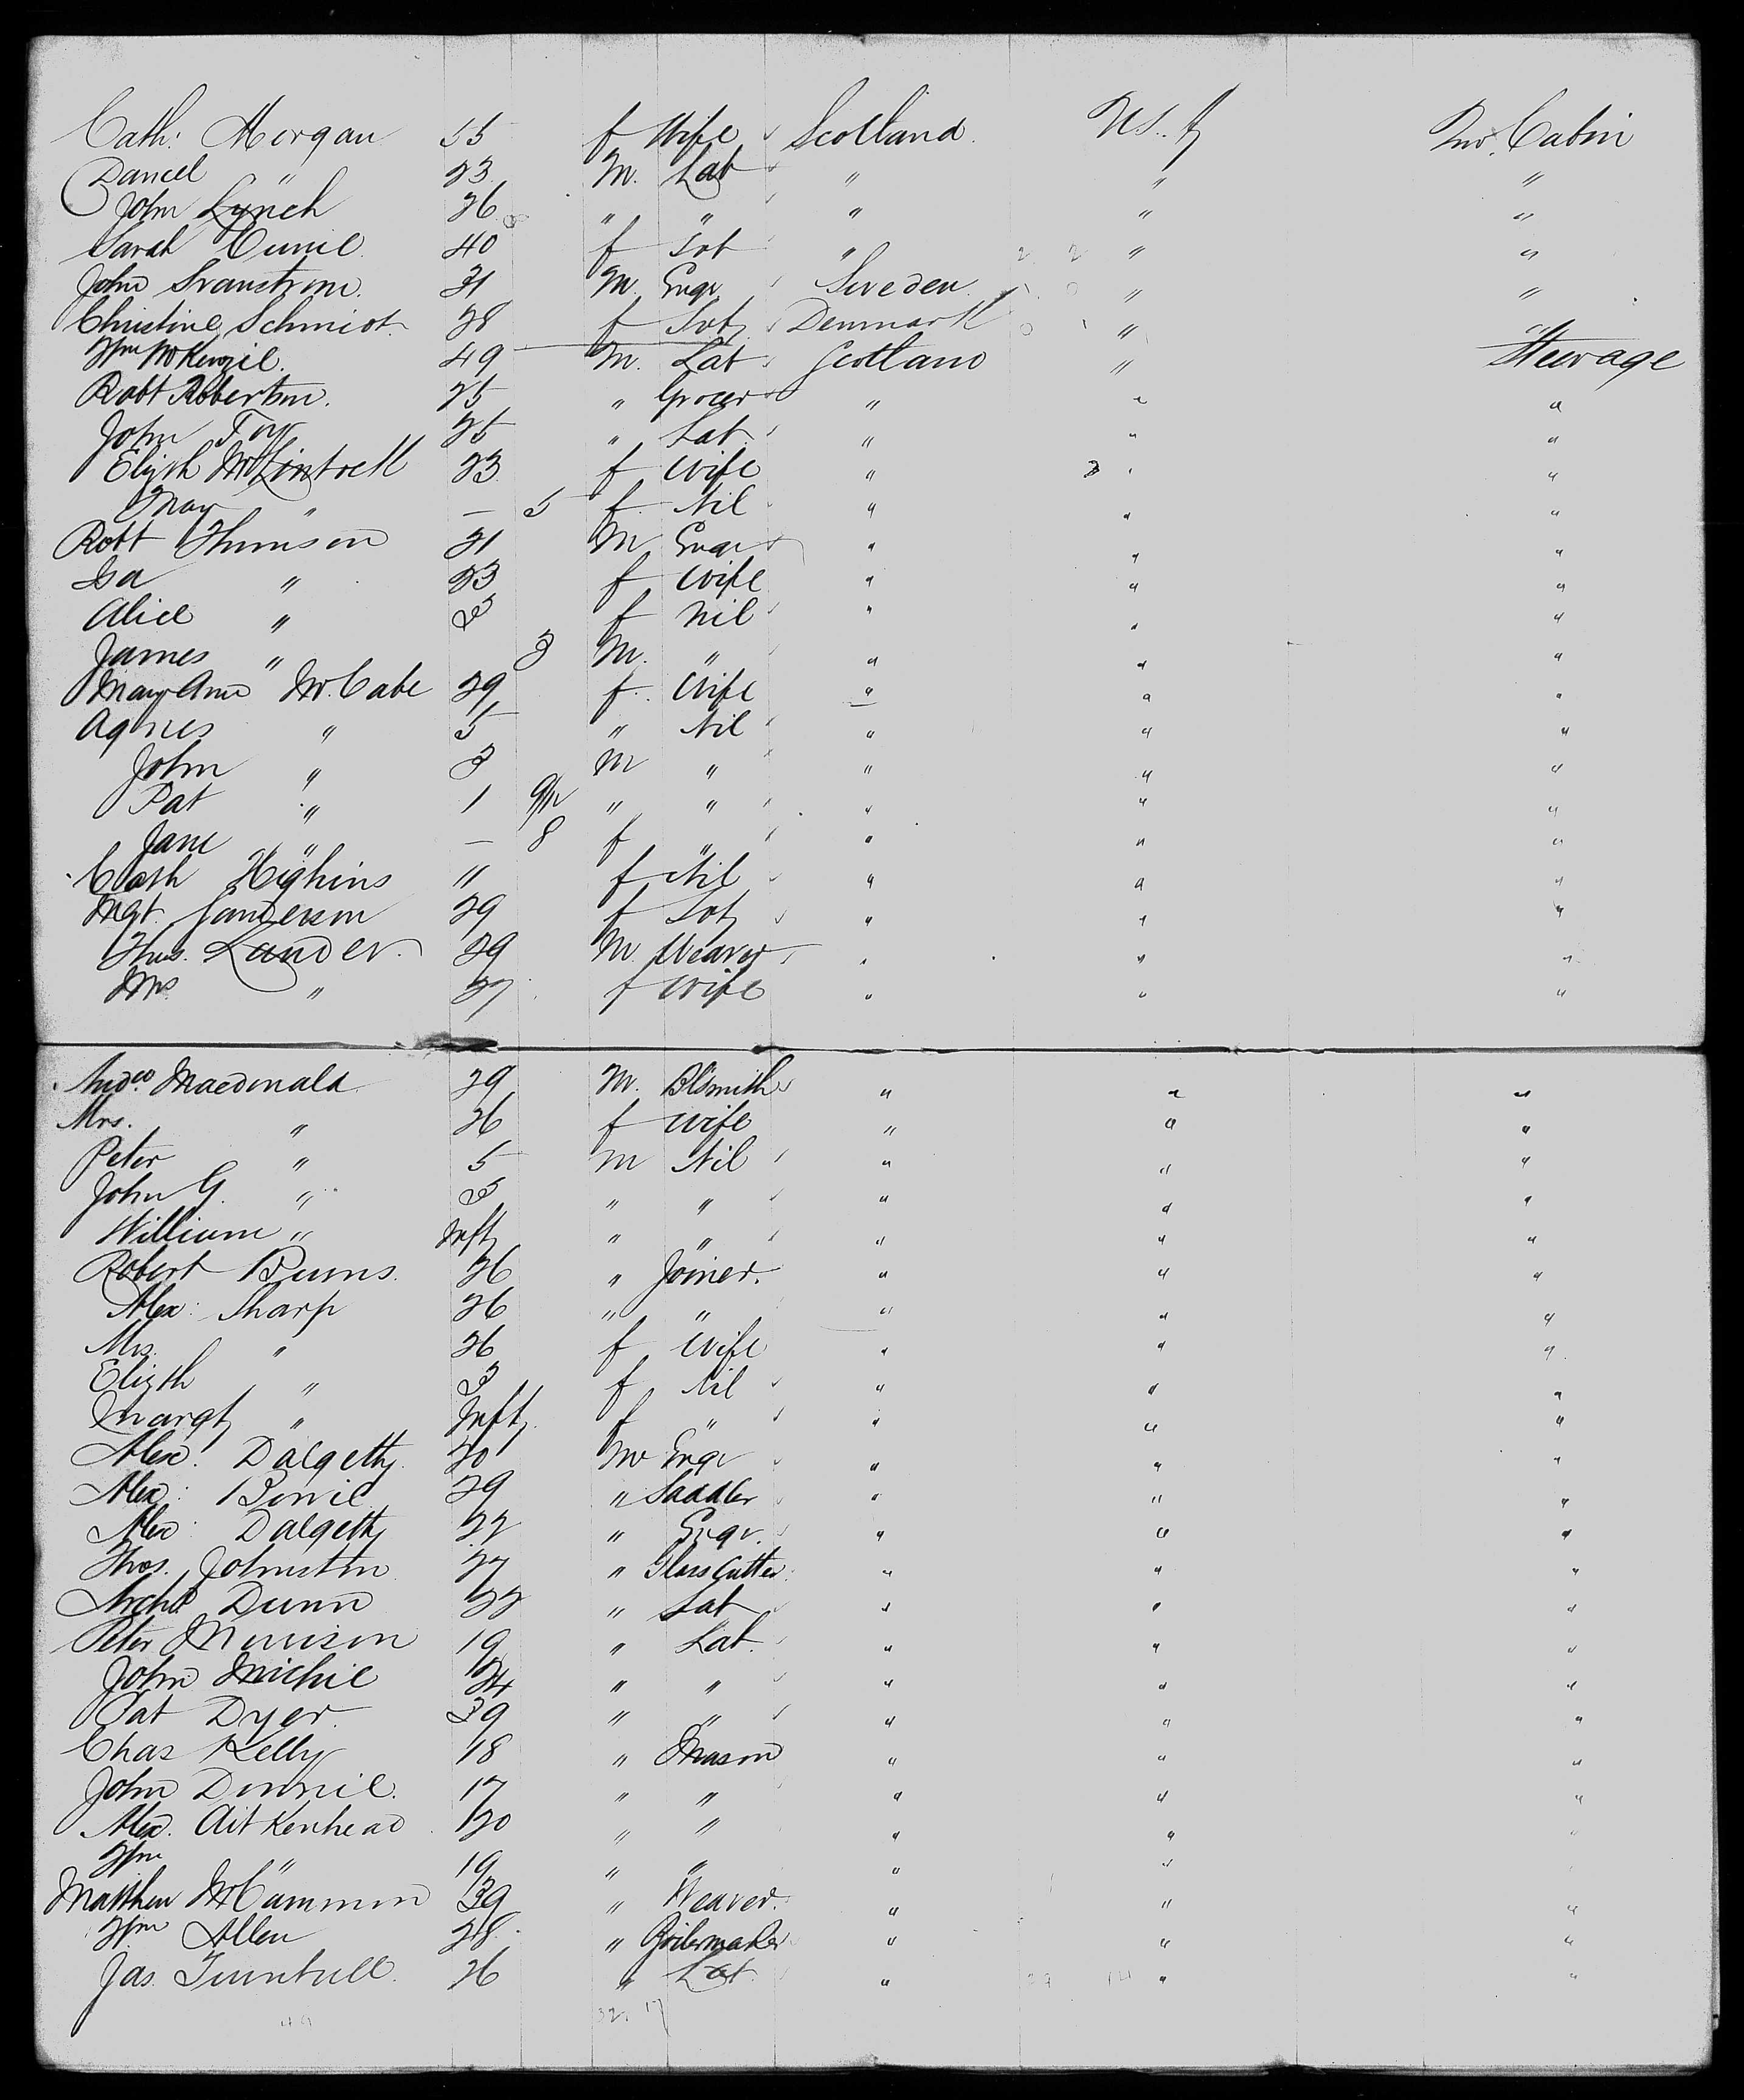 Cath: Morgan 55 f Wife Scotland U.S.A Inr. Cabin
Daniel " 23 M. Lab " " "
John Lynch 26 " " " " "
Sarah 40 f Svt " " "
John Svanstrom. 31 M. Engr Sweden " "
Christine Schmidt 28 f Svt Denmark " "
Wm McKenzie. 49 M. Lab Scotland " Steerage
Robt Robertson. 25 " Grocer " " "
John Foy 25 " Lab. " " "
Elizth McLintock 23 f Wife " " "
May " — 5 f Nil " " "
Robt Thomson 21 M Engr " " "
Isa " 23 f Wife " " "
Alice " 3 f Nil " " "
James " 3 M. " " " "
Mary Ann McCabe 29 f. Wife " " "
Agnes " 5 " Nil " " "
John " 3 M " " " "
Pat " 1 9/12 " " " " "
Jane " — 8 f " " " "
Cath Higkins 11 f Nil " " "
Mgt. Sanderson 29 f Svt " " "
Thos. Lander. 29 M. Weaver " " "
Mrs " 27 f Wife " " "
Andw. Macdonald 29 M. Blsmith " " "
Mrs. " 26 f Wife " " "
Peter " 5 M Nil " " "
John G. " 3 " " " " "
William " Inft " " " " "
Robert Burns. 26 " Joiner. " " "
Alex: Sharp 26 " " " " "
Mrs. " 26 f Wife " " "
Elizth " 3 f Nil " " "
Margt " Inft. f " " " "
Alex: Dalgetty. 20 M Engr " " "
Alex: 29 " Saddler " " "
Alex: Dalgetty 22 " Engr. " " "
Thos. Johnston 27 " Glass Cutter " " "
Archd Dunn 22 " Lab " " "
Peter Morrison 19 " Lab. " " "
John Michie 24 " " " " "
Pat Dyer. 39 " " " " "
Chas Kelly 18 " Mason " " "
John Donnie. 17 " " " " "
Alex. Aitkenhead 20 " " " " "
Wm " 19 " " " " "
Matthew McCammon 39 " Weaver. " " "
Wm Allen 28. " Boilermaker " " "
Jas. Turnbull. 26 " Lab. " " "